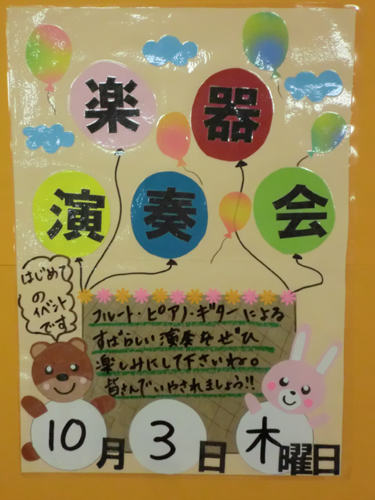 楽器
演奏会
はじめて
の
イベント
です
フルート・ピアノ・ギターによる
すばらしい演奏をぜひ
楽しみにして下さいね。
皆さんでいやされましょう!!
10月3日木曜日